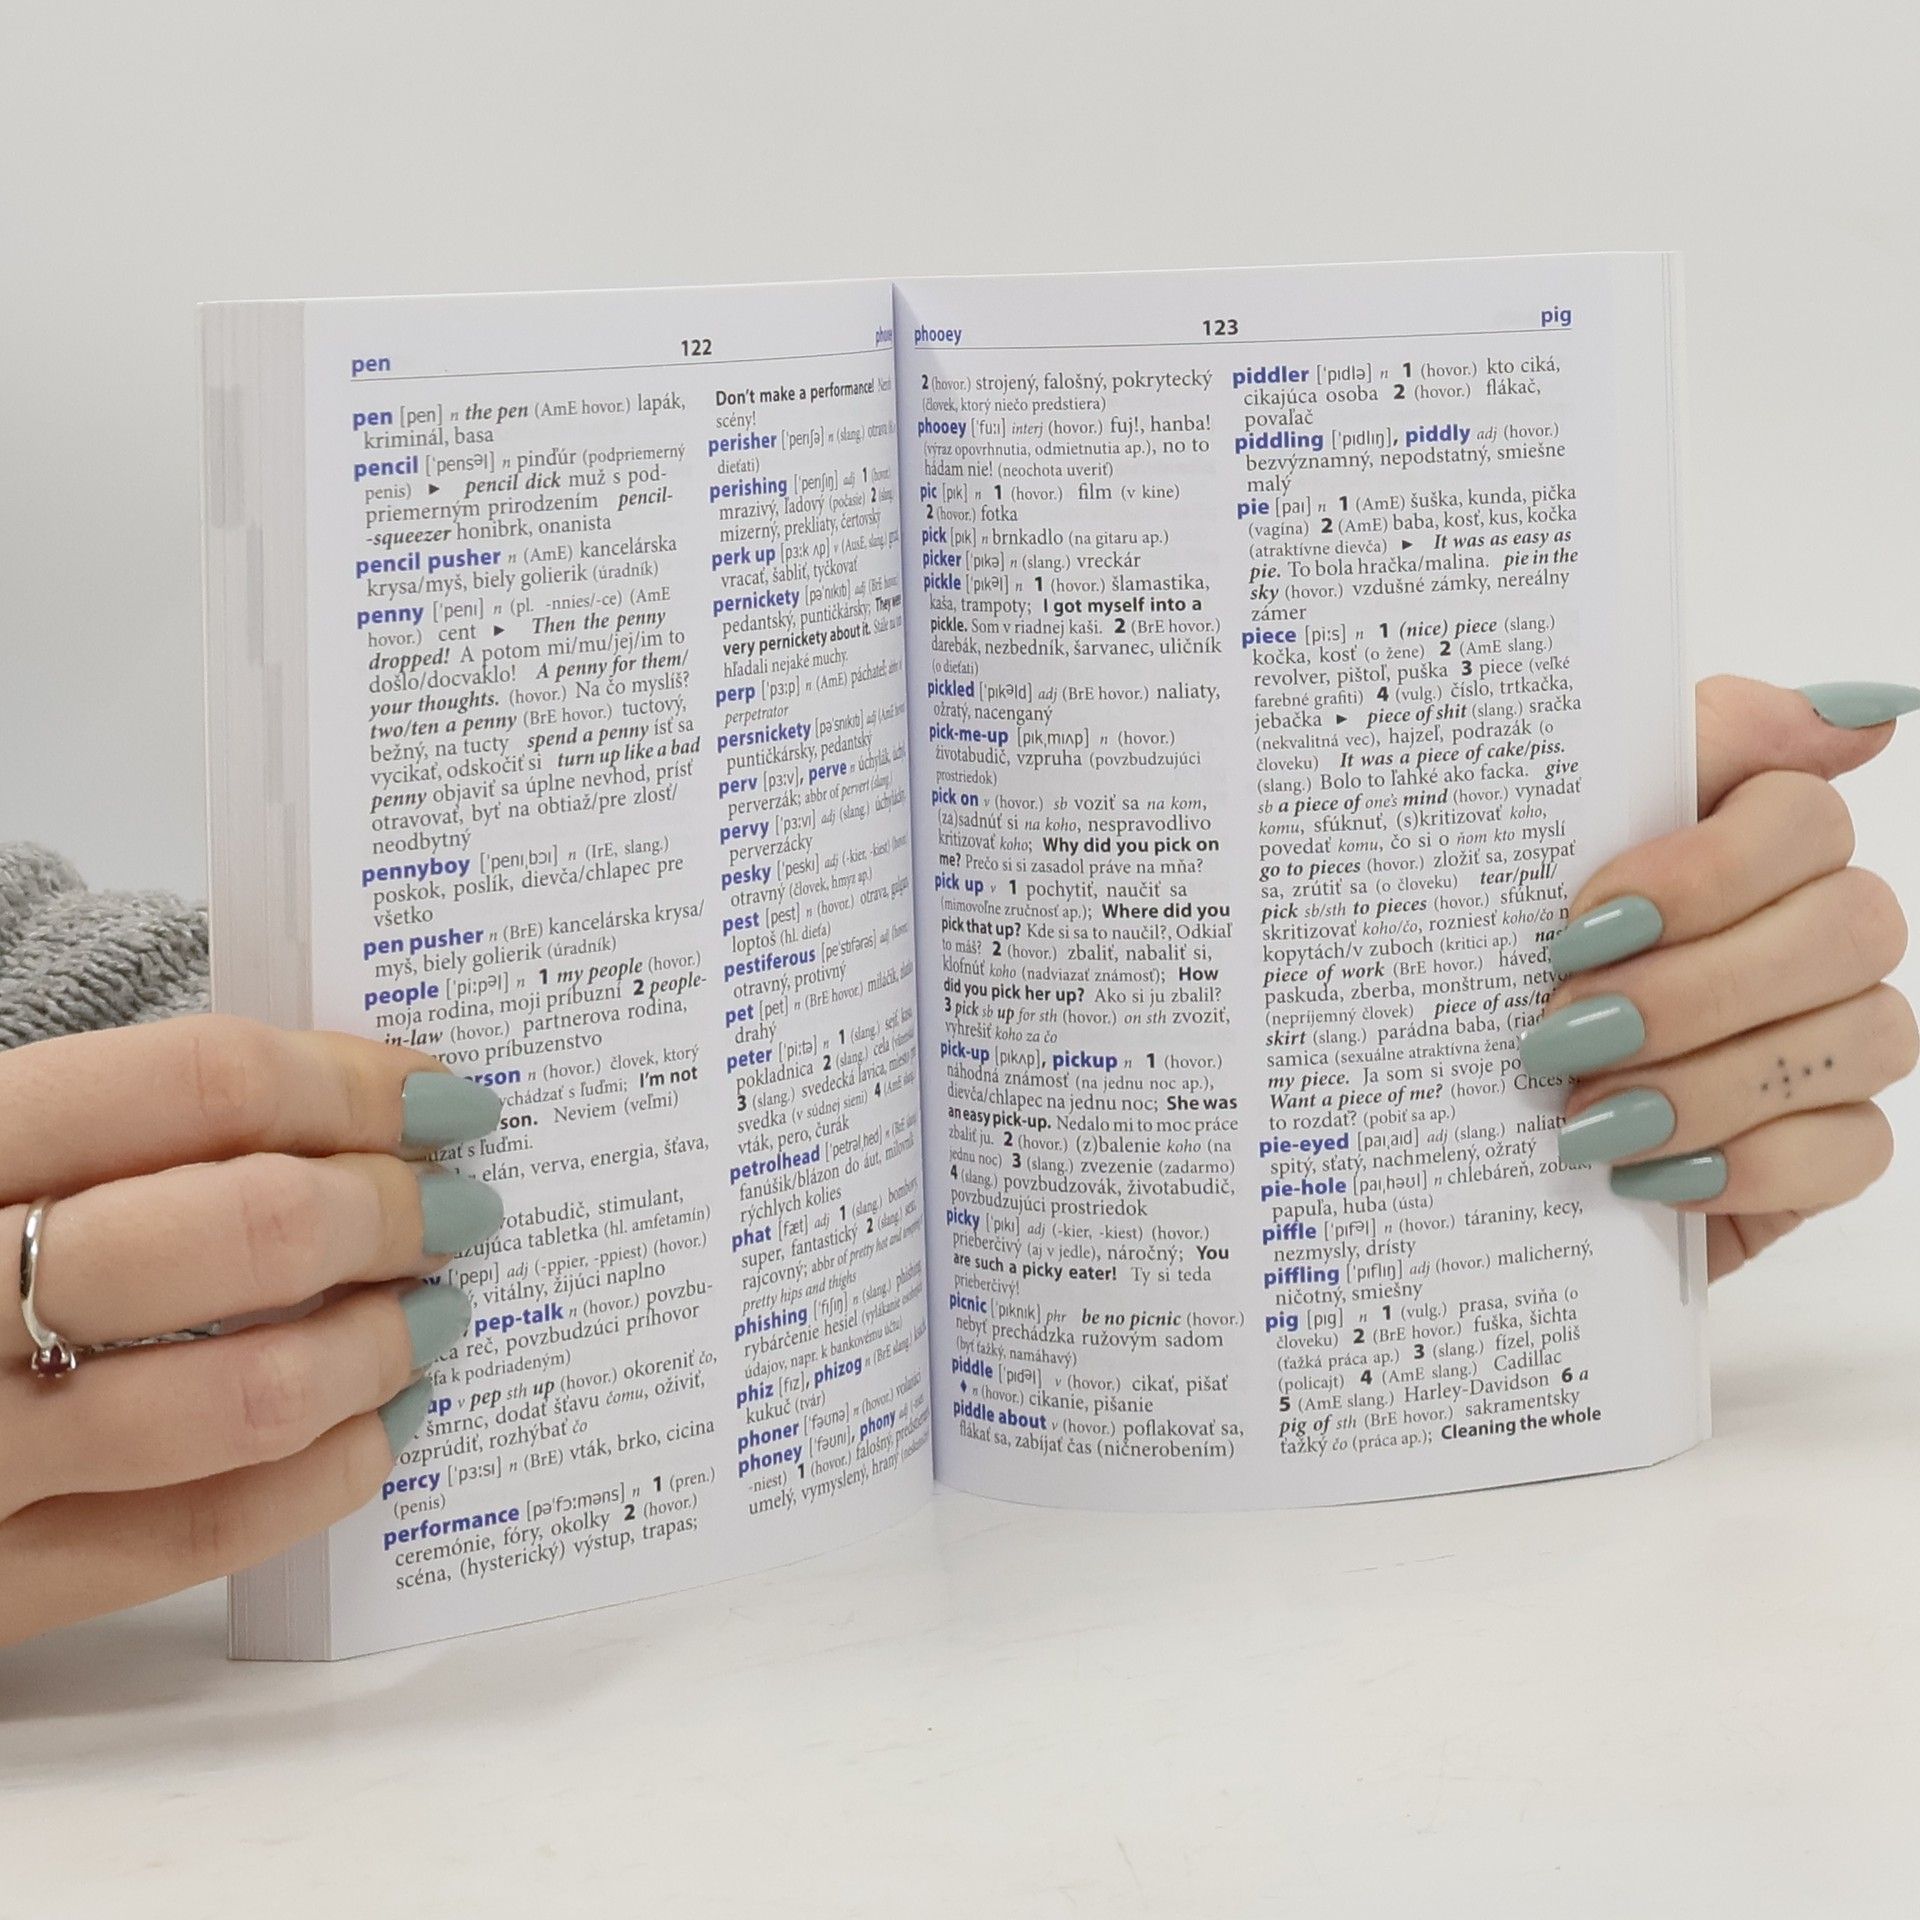 pen 122
pen [pen] n the pen (AmE hovor.) lapák,
kriminál, basa
pencil [ˈpensᵊl] n pinďúr (podpriemerný
penis) ► pencil dick muž s pod-
priemerným prirodzením pencil-
-squeezer honibrk, onanista
pencil pusher n (AmE) kancelárska
krysa/myš, biely golierik (úradník)
penny [ˈpenɪ] n (pl. -nnies/-ce) (AmE
hovor.) cent ► Then the penny
dropped! A potom mi/mu/jej/im to
došlo/docvaklo! A penny for them/
your thoughts. (hovor.) Na čo myslíš?
two/ten a penny (BrE hovor.) tuctový,
bežný, na tucty spend a penny ísť sa
vycikať, odskočiť si turn up like a bad
penny objaviť sa úplne nevhod, prísť
otravovať, byť na obtiaž/pre zlosť/
neodbytný
pennyboy [ˈpenɪˌbɔɪ] n (IrE, slang.)
poskok, poslík, dievča/chlapec pre
všetko
pen pusher n (BrE) kancelárska krysa/
myš, biely golierik (úradník)
people [ˈpi:pᵊl] n 1 my people (hovor.)
moja rodina, moji príbuzní 2 people-
in-law (hovor.) partnerova rodina,
príbuzenstvo
n (hovor.) človek, ktorý
s ľuďmi; I'm not
Neviem (veľmi)
s ľuďmi.
elán, verva, energia, šťava,
stimulant,
tabletka (hl. amfetamín)
[ˈpepɪ] adj (-ppier, -ppiest) (hovor.)
vitálny, žijúci naplno
pep-talk n (hovor.) povzbu-
reč, povzbudzúci príhovor
k podriadeným)
v pep sth up (hovor.) okoreniť čo,
šmrnc, dodať šťavu čomu, oživiť,
rozprúdiť, rozhýbať čo
percy [ˈpɜ:sɪ] n (BrE) vták, brko, cicina
(penis)
performance [pəˈfɔ:məns] n 1 (pren.)
ceremónie, fóry, okolky 2 (hovor.)
scéna, (hysterický) výstup, trapas;
Don't make a performance!
scény!
perisher [ˈperɪʃə] n (slang.) otrava
dieťati)
perishing [ˈperɪʃɪŋ] adj 1
mrazivý, ľadový (počasie) 2
mizerný, prekliaty, čertovský
perk up [pɜ:k ʌp] v (AusE, slang.)
vracať, šabliť, tyčkovať
pernickety [pəˈnɪkɪtɪ] adj (BrE
pedantský, puntičkársky; They were
very pernickety about it. Stále na
hľadali nejaké muchy.
perp [ˈpɜ:p] n (AmE) páchateľ;
perpetrator
persnickety [pəˈsnɪkɪtɪ] adj
puntičkársky, pedantský
perv [pɜ:v], perve n úchylák,
perverzák; abbr of pervert (slang.)
pervy [ˈpɜ:vɪ] adj (slang.)
perverzácky
pesky [ˈpeskɪ] adj (-kier, -kiest)
otravný (človek, hmyz ap.)
pest [pest] n (hovor.) otrava,
loptoš (hl. dieťa)
pestiferous [peˈstɪfərəs] adj
otravný, protivný
pet [pet] n (BrE hovor.) miláčik,
drahý
peter [ˈpi:tə] n 1 (slang.) sejf,
pokladnica 2 (slang.) cela
3 (slang.) svedecká lavica, miesto
svedka (v súdnej sieni) 4
vták, pero, čurák
petrolhead [ˈpetrəlˌhed] n
fanúšik/blázon do áut, milovník
rýchlych kolies
phat [fæt] adj 1 (slang.) bombový,
super, fantastický 2 (slang.)
rajcovný; abbr of pretty hot and
pretty hips and thighs
phishing [ˈfɪʃɪŋ] n (slang.) phishing,
rybárčenie hesiel (vylákanie
údajov, napr. k bankovému účtu)
phiz [fɪz], phizog n (BrE slang.)
kukuč (tvár)
phoner [ˈfəʊnə] n (hovor.)
phoney [ˈfəʊnɪ], phony adj
-niest) 1 (hovor.) falošný,
umelý, vymyslený, hraný
phooey 123 pig
2 (hovor.) strojený, falošný, pokrytecký
(človek, ktorý niečo predstiera)
phooey [ˈfu:ɪ] interj (hovor.) fuj!, hanba!
(výraz opovrhnutia, odmietnutia ap.), no to
hádam nie! (neochota uveriť)
pic [pɪk] n 1 (hovor.) film (v kine)
2 (hovor.) fotka
pick [pɪk] n brnkadlo (na gitaru ap.)
picker [ˈpɪkə] n (slang.) vreckár
pickle [ˈpɪkᵊl] n 1 (hovor.) šlamastika,
kaša, trampoty; I got myself into a
pickle. Som v riadnej kaši. 2 (BrE hovor.)
darebák, nezbedník, šarvanec, uličník
(o dieťati)
pickled [ˈpɪkᵊld] adj (BrE hovor.) naliaty,
ožratý, nacenganý
pick-me-up [pɪkˌmɪʌp] n (hovor.)
životabudič, vzpruha (povzbudzujúci
prostriedok)
pick on v (hovor.) sb voziť sa na kom,
(za)sadnúť si na koho, nespravodlivo
kritizovať koho; Why did you pick on
me? Prečo si si zasadol práve na mňa?
pick up v 1 pochytiť, naučiť sa
(mimovoľne zručnosť ap.); Where did you
pick that up? Kde si sa to naučil?, Odkiaľ
to máš? 2 (hovor.) zbaliť, nabaliť si,
klofnúť koho (nadviazať známosť); How
did you pick her up? Ako si ju zbalil?
3 pick sb up for sth (hovor.) on sth zvoziť,
vyhrešiť koho za čo
pick-up [pɪkʌp], pickup n 1 (hovor.)
náhodná známosť (na jednu noc ap.),
dievča/chlapec na jednu noc; She was
an easy pick-up. Nedalo mi to moc práce
zbaliť ju. 2 (hovor.) (z)balenie koho (na
jednu noc) 3 (slang.) zvezenie (zadarmo)
4 (slang.) povzbudzovák, životabudič,
povzbudzujúci prostriedok
picky [ˈpɪkɪ] adj (-kier, -kiest) (hovor.)
prieberčivý (aj v jedle), náročný; You
are such a picky eater! Ty si teda
prieberčivý!
picnic [ˈpɪknɪk] phr be no picnic (hovor.)
nebyť prechádzka ružovým sadom
(byť ťažký, namáhavý)
piddle [ˈpɪdᵊl] v (hovor.) cikať, pišať
♦ n (hovor.) cikanie, pišanie
piddle about v (hovor.) poflakovať sa,
flákať sa, zabíjať čas (ničnerobením)
piddler [ˈpɪdlə] n 1 (hovor.) kto ciká,
cikajúca osoba 2 (hovor.) flákač,
povaľač
piddling [ˈpɪdlɪŋ], piddly adj (hovor.)
bezvýznamný, nepodstatný, smiešne
malý
pie [paɪ] n 1 (AmE) šuška, kunda, pička
(vagína) 2 (AmE) baba, kosť, kus, kočka
(atraktívne dievča) ► It was as easy as
pie. To bola hračka/malina. pie in the
sky (hovor.) vzdušné zámky, nereálny
zámer
piece [pi:s] n 1 (nice) piece (slang.)
kočka, kosť (o žene) 2 (AmE slang.)
revolver, pištoľ, puška 3 piece (veľké
farebné grafiti) 4 (vulg.) číslo, trtkačka,
jebačka ► piece of shit (slang.) sračka
(nekvalitná vec), hajzeľ, podrazák (o
človeku) It was a piece of cake/piss.
(slang.) Bolo to ľahké ako facka. give
sb a piece of one's mind (hovor.) vynadať
komu, sfúknuť, (s)kritizovať koho,
povedať komu, čo si o ňom kto myslí
go to pieces (hovor.) zložiť sa, zosypať
sa, zrútiť sa (o človeku) tear/pull/
pick sb/sth to pieces (hovor.) sfúknuť,
skritizovať koho/čo, rozniesť koho/čo
kopytách/v zuboch (kritici ap.)
piece of work (BrE hovor.) háveď,
paskuda, zberba, monštrum,
(nepríjemný človek) piece of
skirt (slang.) parádna baba,
samica (sexuálne atraktívna žena)
my piece. Ja som si svoje
Want a piece of me? (hovor.) Chceš
to rozdať? (pobiť sa ap.)
pie-eyed [paɪˌaɪd] adj (slang.)
spitý, sťatý, nachmelený, ožratý
pie-hole [paɪˌhəʊl] n chlebáreň,
papuľa, huba (ústa)
piffle [ˈpɪfᵊl] n (hovor.) táraniny, kecy,
nezmysly, drísty
piffling [ˈpɪflɪŋ] adj (hovor.) malicherný,
ničotný, smiešny
pig [pɪg] n 1 (vulg.) prasa, sviňa (o
človeku) 2 (BrE hovor.) fuška, šichta
(ťažká práca ap.) 3 (slang.) fízel, poliš
(policajt) 4 (AmE slang.) Cadillac
5 (AmE slang.) Harley-Davidson 6 a
pig of sth (BrE hovor.) sakramentsky
ťažký čo (práca ap.); Cleaning the whole